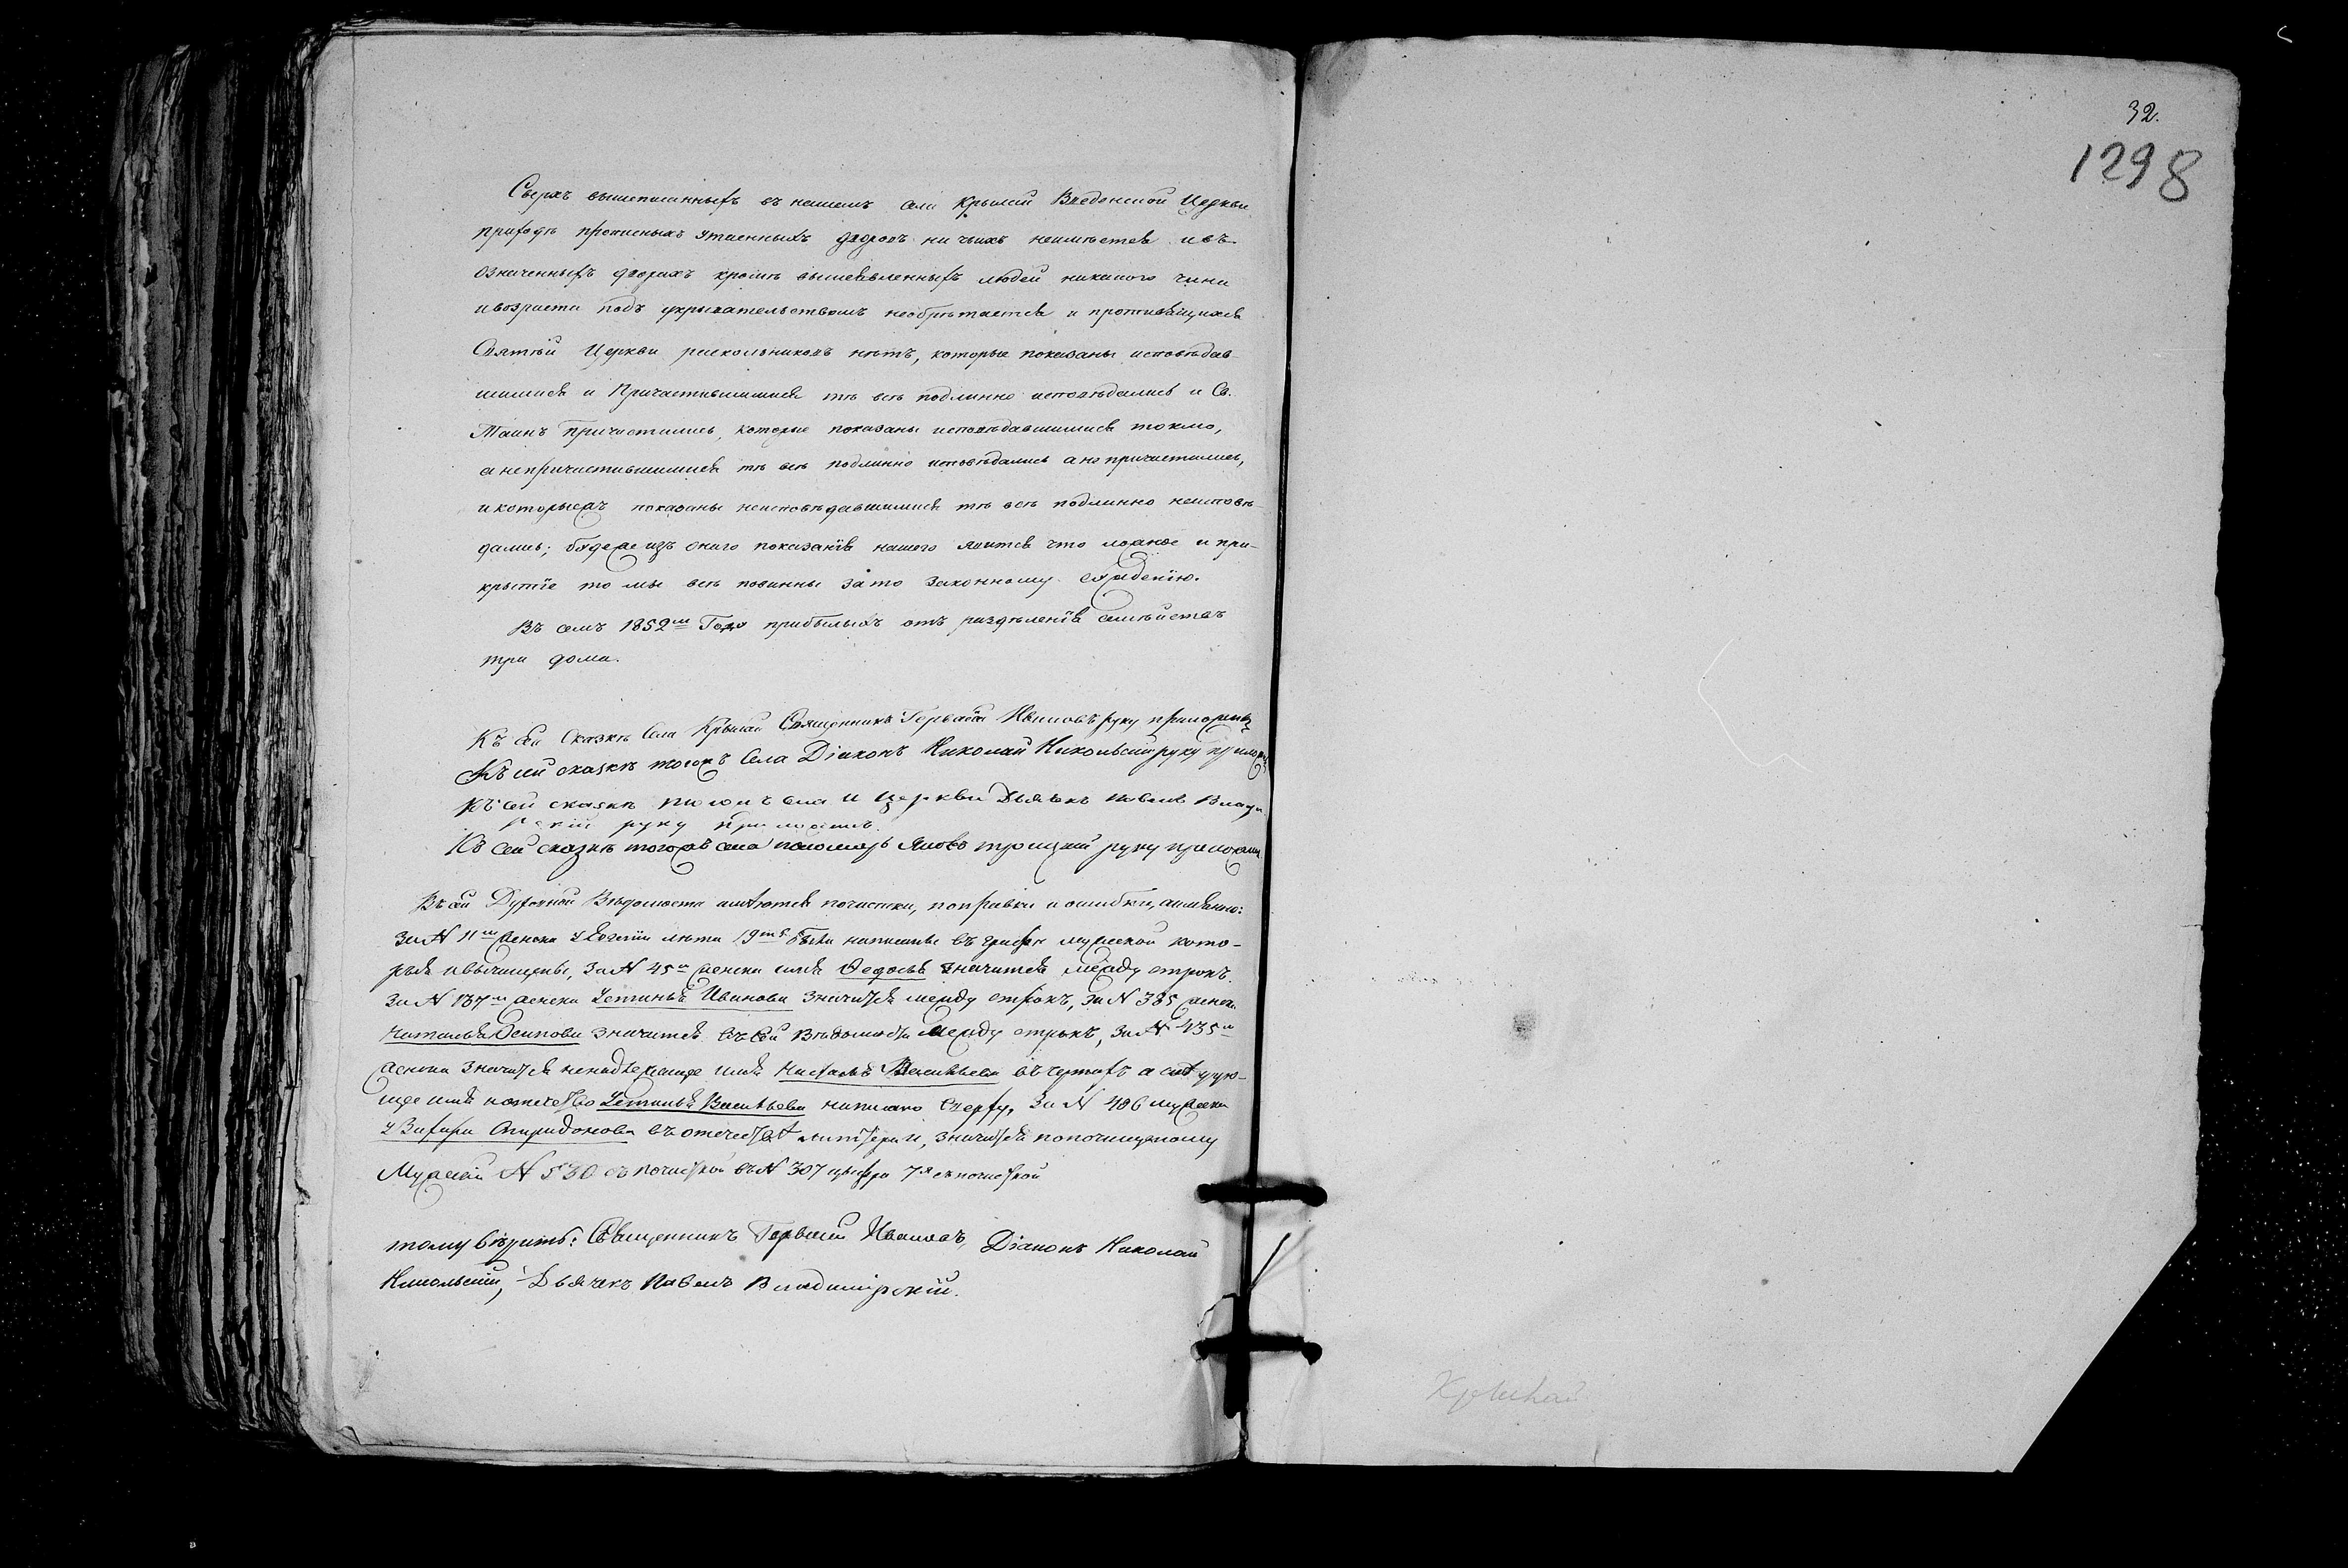 Сверхъ вышеписанныхъ въ нашемъ селѣ Крымкѣ Введенской Церкви
приходѣ прописныхъ утаенныхъ дворовъ ни чьихъ неимѣется ивъ
означенныхъ дворахъ кромѣ вышеявленныхъ людей никакого чина
ивозраста подъ укрывательствомъ необрѣтается и противящихся
Святѣй Церкви раскольниковъ нѣтъ, которые показаны исповѣдав-
шимися и Причастившимися тѣ всѣ подлинно исповѣдались и Св.
Таинъ причастились, которые показаны исповѣдавшимися токмо,
а непричастившимися тѣ всѣ подлинно исповѣдались а не причастились,
икоторыежъ показаны неисповѣдавшимися тѣ всѣ подлинно неисповѣ-
дались; будеже изъ онаго показанія нашего явится что ложное и при-
крытіе то мы всѣ повинны за то законному сужденію.
Въ семъ 1852мъ Году прибылыхъ отъ раздѣленія семѣйствъ
три дома.
Къ сей Сказкѣ Села Священникъ Гервасій Ивановъ руку приложилъ
Къ сей сказкѣ тогожъ Села Діаконъ Николай Никольскій руку приложилъ
Къ сей сказкѣ тогожъ села и Церкви Дьячекъ Павелъ Влади
рскій руку приложилъ.
Къ сей сказкѣ тогожъ села пономарь Яковъ Троицкій руку приложилъ
Въ сей Духовной Вѣдомости имѣются почистки, поправки и ошибки, аименно:
За N 11мъ женска у лѣта 19ть были написаны въ графѣ мужеской кото-
рыя ивычищены, За N 45мъ женска имя Ѳедосья значится между строкъ.
За N 137мъ женска Устинья Иванова значится между строкъ, За N 385 женска
Наталья Осипова значится въ сей Вѣдомости между строкъ, За N 435м
женска значится ненадлежаще имя Наталья Васильева въ чертахъ а слѣдую-
щее имя иотечество Устинья Васильева написано сверху, За N 486 мужеска
у Захара Спиридонова въ отечествѣ литера и, значится попочищенному
Мужескій N 530 съ почисткой въ N 307 цыфра 7я съ почисткой
тому вѣрить: Священникъ Гервасій Ивановъ, Діаконъ Николай
Никольскій, Дьячекъ Павелъ Владимірскій.
32.
1298